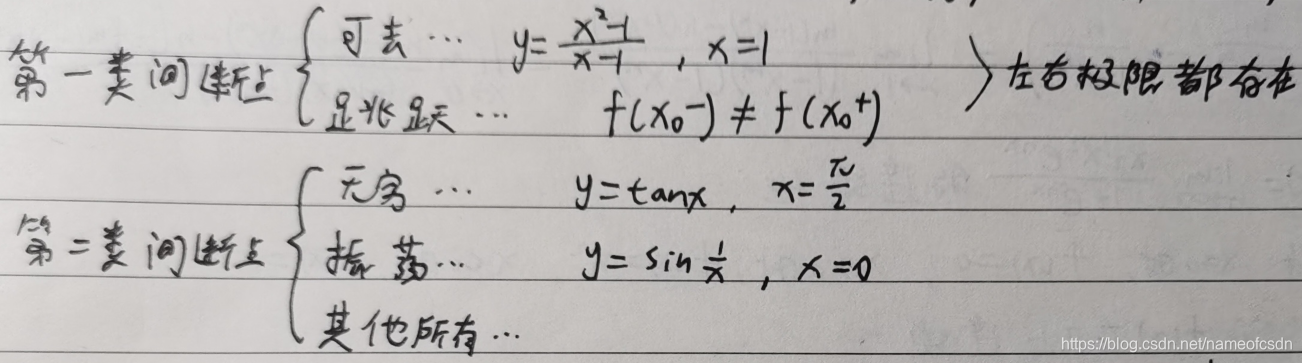 第一类间断点 { 可去… y = \frac{x^2-1}{x-1} , x=1
跳跃… f(x_0^-) ≠ f(x_0^+) 〉左右极限都存在
第二类间断点 { 无穷… y=tanx , x=\frac{π}{2}
振荡… y=sin\frac{1}{x} , x=0
其他所有…
https://blog.csdn.net/nameofcsdn